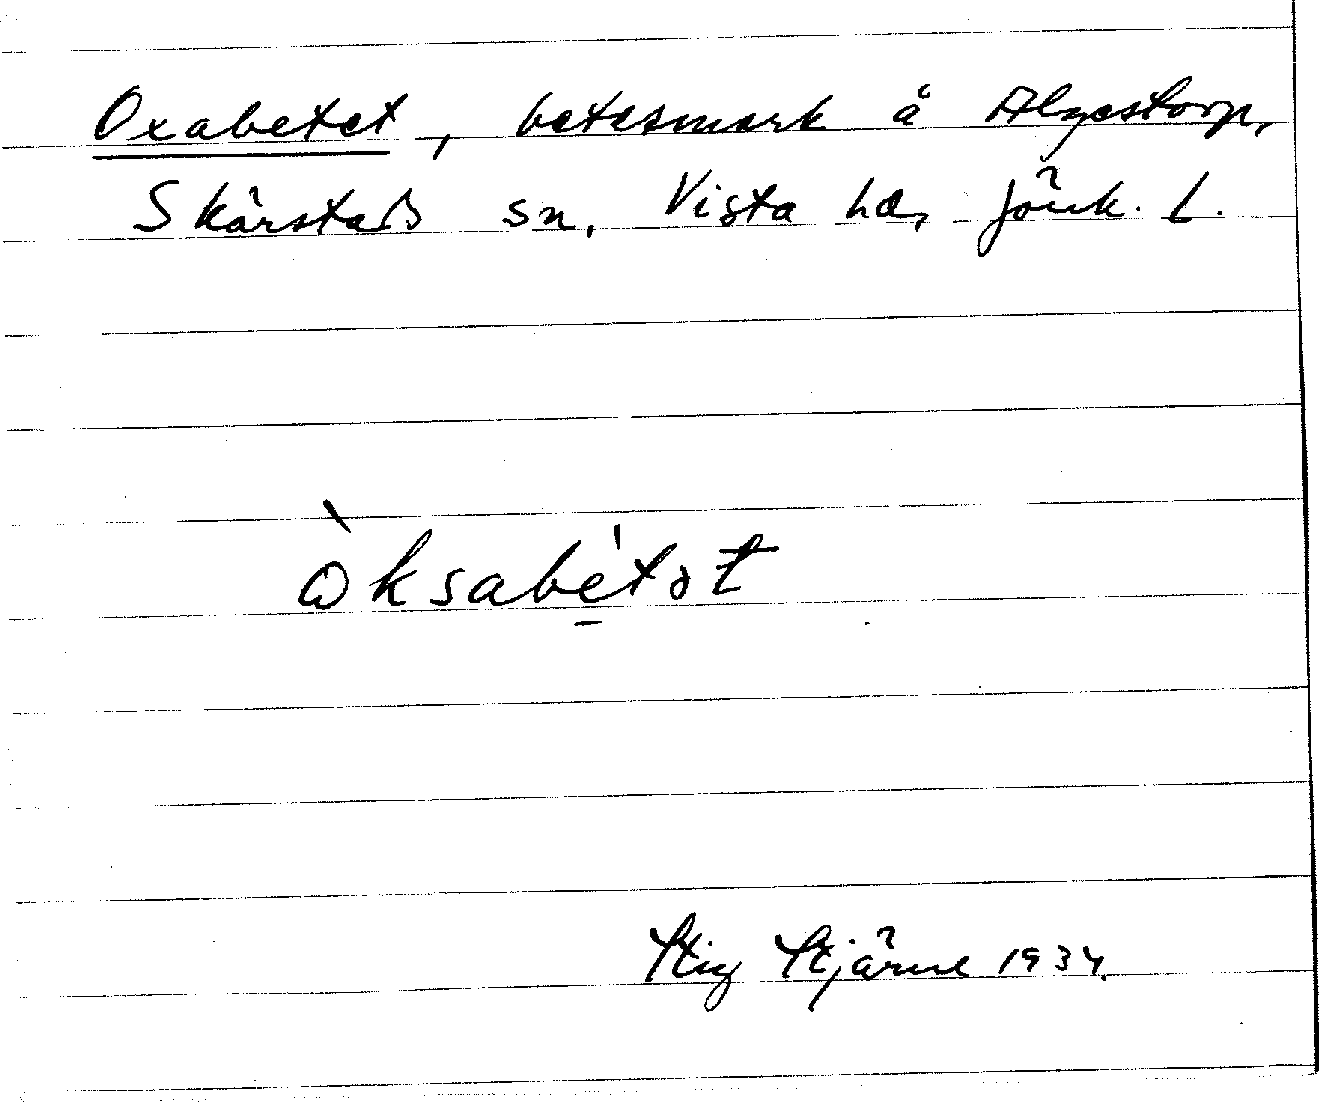 Oxabetet, betesmark å Algestorp,
Skärstads sn, Vista hd, Jönk. l.
òksabétət
Stig Stjärne 1934.